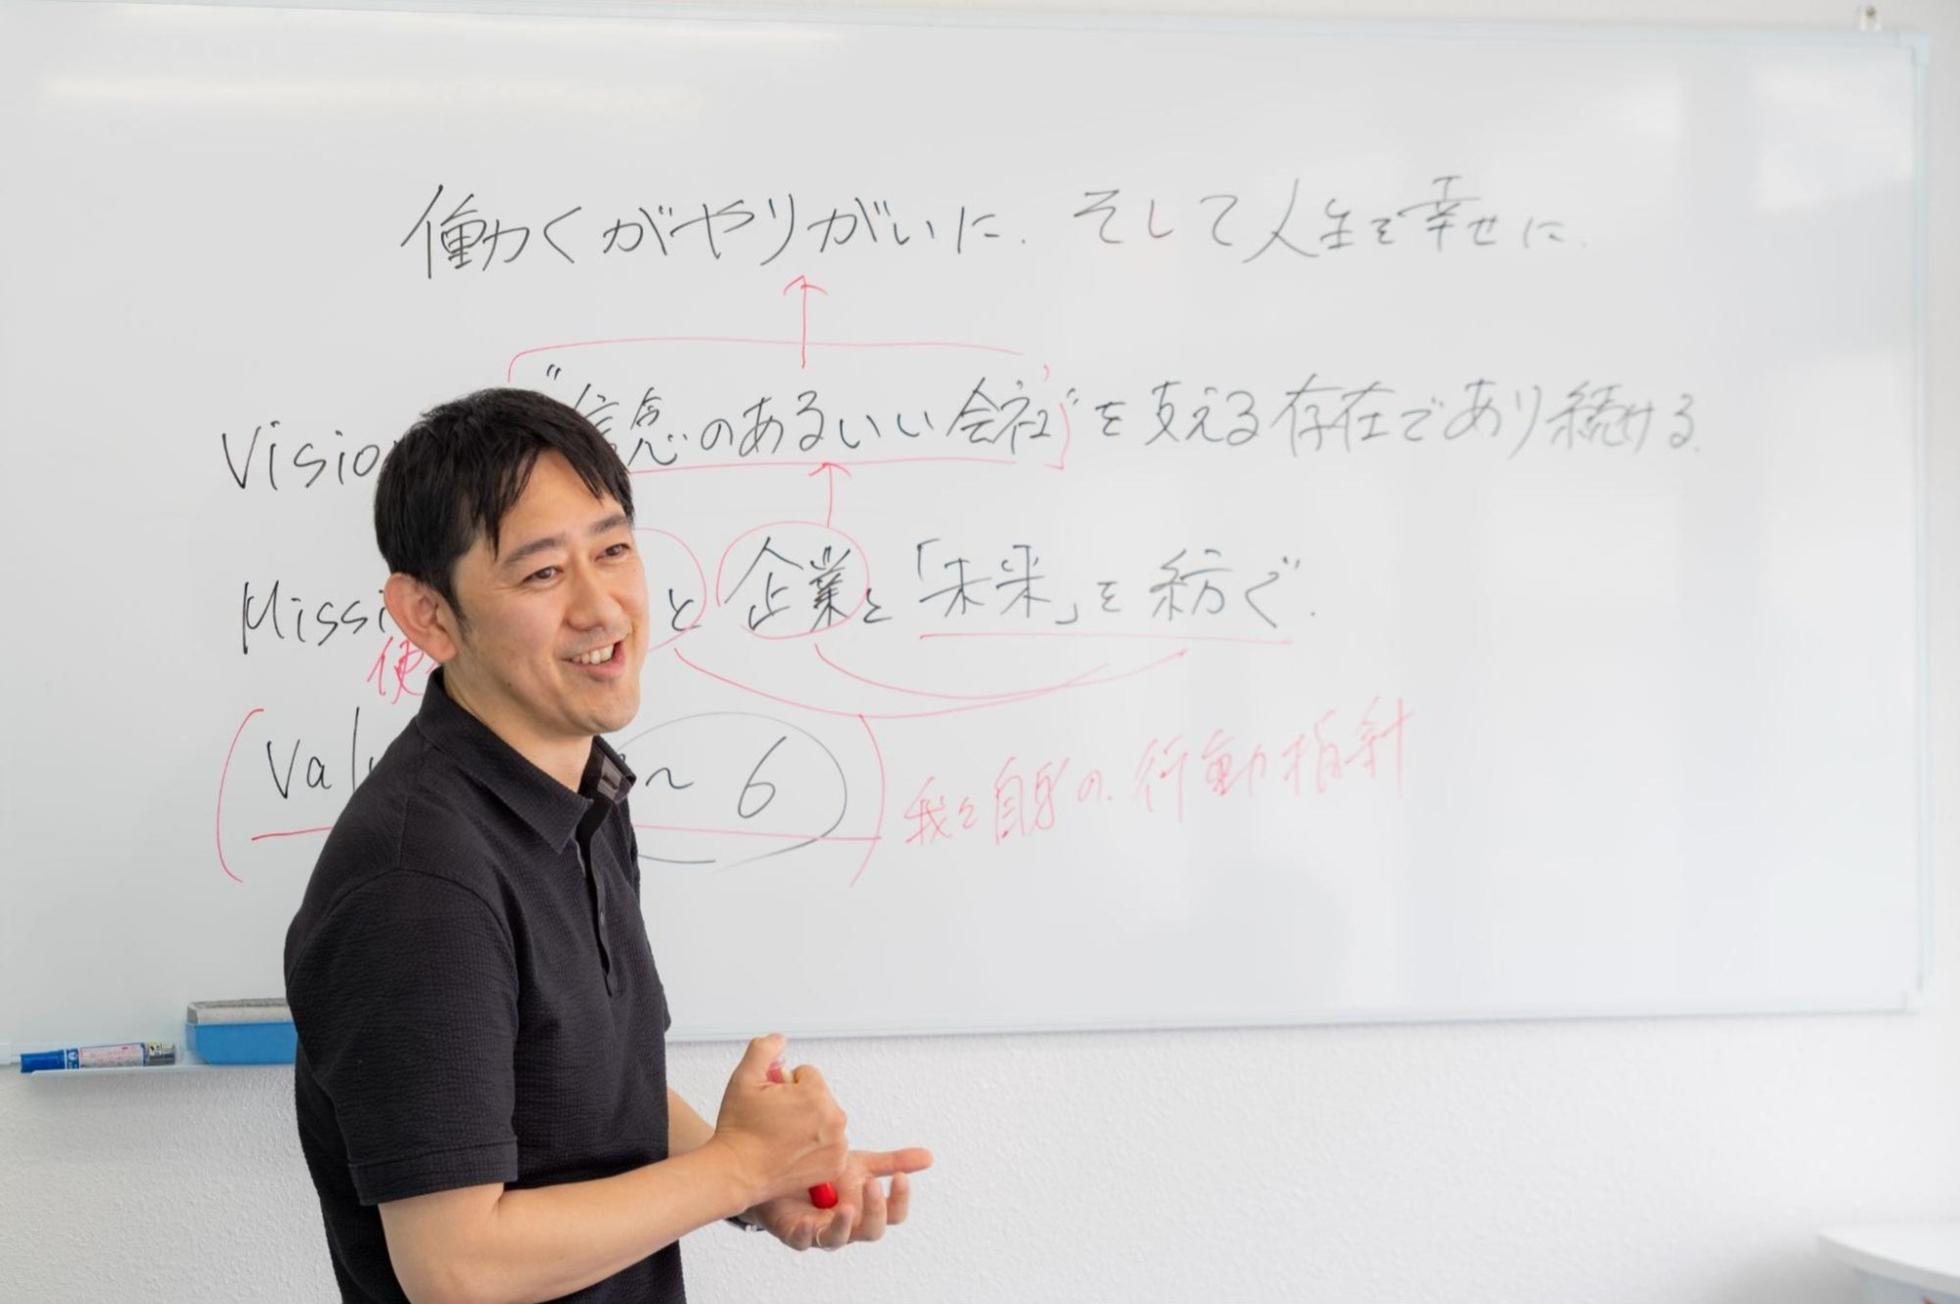 働くがやりがいに. そして人生を幸せに.
Visio "信念のあるいい会社"を支える存在であり続ける.
Missi と 企業と「未来」を紡ぐ.
使
Valu ~ 6 我々自身の行動指針